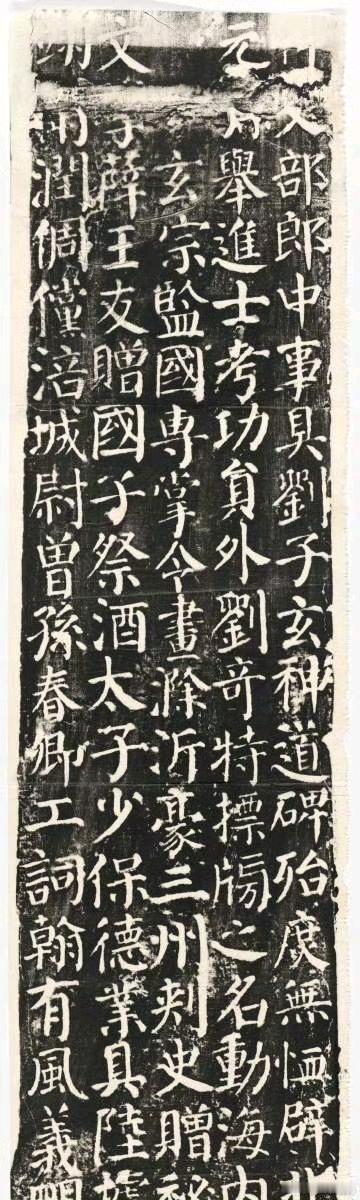 部郎中事具劉子玄神道碑殆庶無恤辟
元孫舉進士考功員外劉奇特摽牓之名動海內
玄宗監國專掌令畫滁沂豪三州刾史贈
文薛王友贈國子祭酒太子少保德業具陸據
潤倜儻涪城尉曾孫春卿工詞翰有風義明